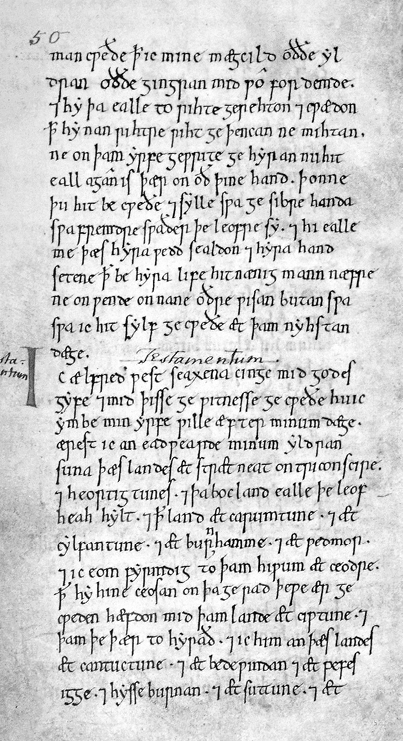 50
man cƿęðe ꝥ ic mine mægcild oððe yl
dran oððe gingran mid ƿo fordemde.
⁊ hy þa ealle to rihte gerehton ⁊ cƿædon
ꝥ hy nan rihtre riht geþencan ne mihtan.
ne on þam yrfe geƿrite gehyran nu hit
eall agan is þær on oð þine hand. þonne
þu hit becƿeðe ⁊ sylle sƿa gesibre handa
sƿa fremdre sƿaðer þe leofre sy. ⁊ hi ealle
me þæs hyra ƿedd sealdon ⁊ hyra hand
setene ꝥ be hyra life hit nænig mann næfre
ne onƿende on nane oðre ƿisan butan sƿa
sƿa ic hit sylf gecƿeðe æt þam nyhstan
dæge.
Testamentum
Ic ælfred ƿestseaxena cinge mid godes
gyfe ⁊ mid þisse geƿitnesse gecƿeðe hu ic
ymbe min yrfe ƿille æfter minum dæge.
ærest ic an eadƿearde minum yldran
suna þæs landes æt strætneat on triconscire.
⁊ heortigtunes. ⁊ þa bocland ealle þe leof
heah hylt. ⁊ ꝥ land æt carumtune. ⁊ æt
cylfantune. ⁊ æt burnhamme. ⁊ æt ƿedmor.
⁊ ic eom fyrmdig to þam hiƿum æt ceodre.
ꝥ hy hine ceosan on þa gerad þe ƿe ær ge
cƿeden hæfdon mid þam lande æt ciƿtune. ⁊
þam þe þær to hyrað. ⁊ ic him an þæs landes
æt cantuctune. ⁊ æt bedeƿindan ⁊ æt ƿefes
igge. ⁊ hysseburnan. ⁊ æt suttune. ⁊ æt